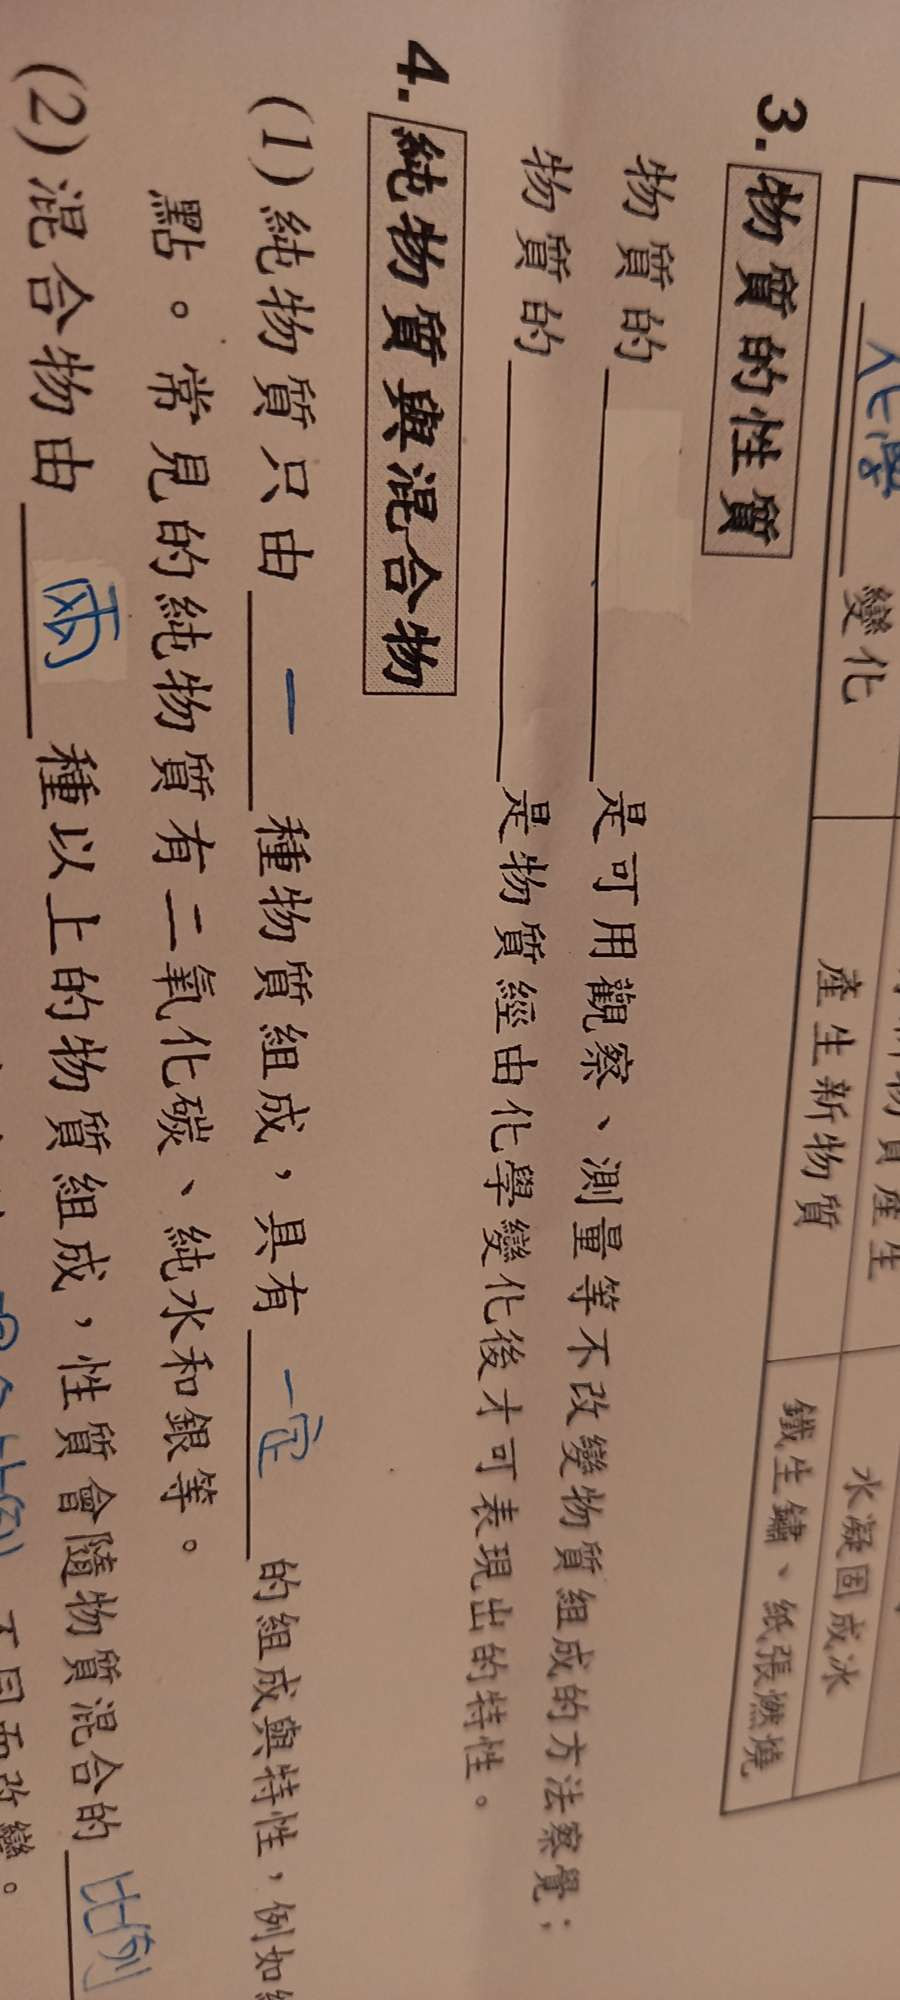 化學 變化
產生新物質
水凝固成冰
鐵生鏽、紙張燃燒
3. 物質的性質
物質的 是可用觀察、測量等不改變物質組成的方法察覺；
物質的 是物質經由化學變化後才可表現出的特性。
4. 純物質與混合物
(1) 純物質只由 一 種物質組成，具有 一定 的組成與特性，例如
點。常見的純物質有二氧化碳、純水和銀等。
(2) 混合物由 兩 種以上的物質組成，性質會隨物質混合的 比例
不同而改變。